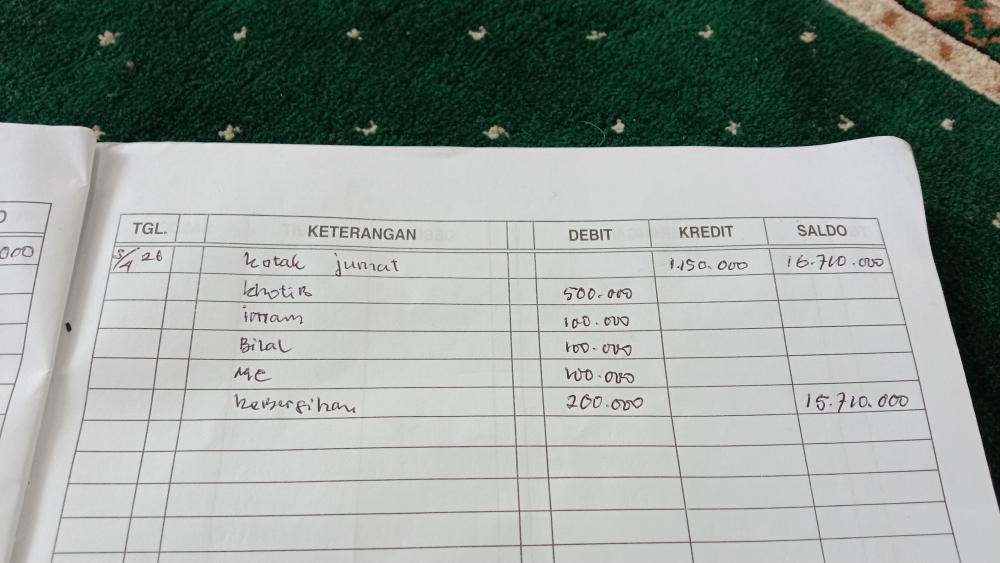 000
TGL. KETERANGAN DEBIT KREDIT SALDO
5/4 26 kotak jumat 1.150.000 16.710.000
khotib 500.000
imam 100.000
Bilal 100.000
MC 100.000
kebersihan 200.000 15.710.000